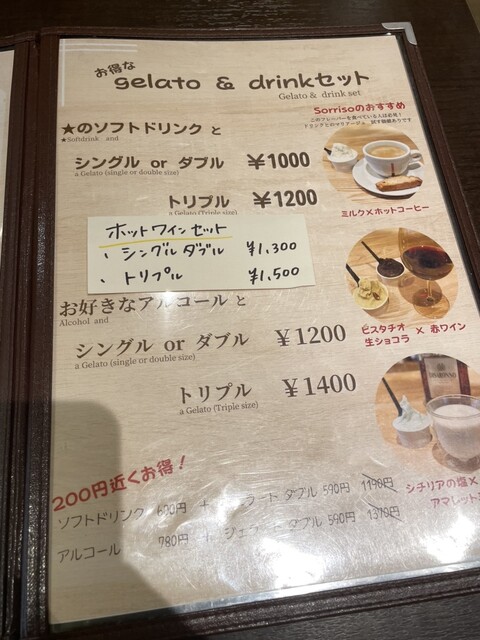 お得な
gelato & drinkセット
Gelato & drink set
Sorrisoのおすすめ
このフレーバーを食べている人は必見!
★のソフトドリンク と
★Softdrink and
シングル or ダブル ¥1000
a Gelato (single or double size)
トリプル ¥1200
a Gelato (Triple size)
ミルク×ホットコーヒー
ホットワインセット
、シングルダブル ¥1,300
、トリプル ¥1,500
お好きなアルコール と
Alcohol and
シングル or ダブル ¥1200
a Gelato (single or double size)
ピスタチオ
生ショコラ × 赤ワイン
トリプル ¥1400
a Gelato (Triple size)
200円近くお得!
ソフトドリンク 600円 + ジェラート ダブル 590円 1190円
アルコール 780円 + ジェラート ダブル 590円 1370円
シチリアの塩×
アマレット